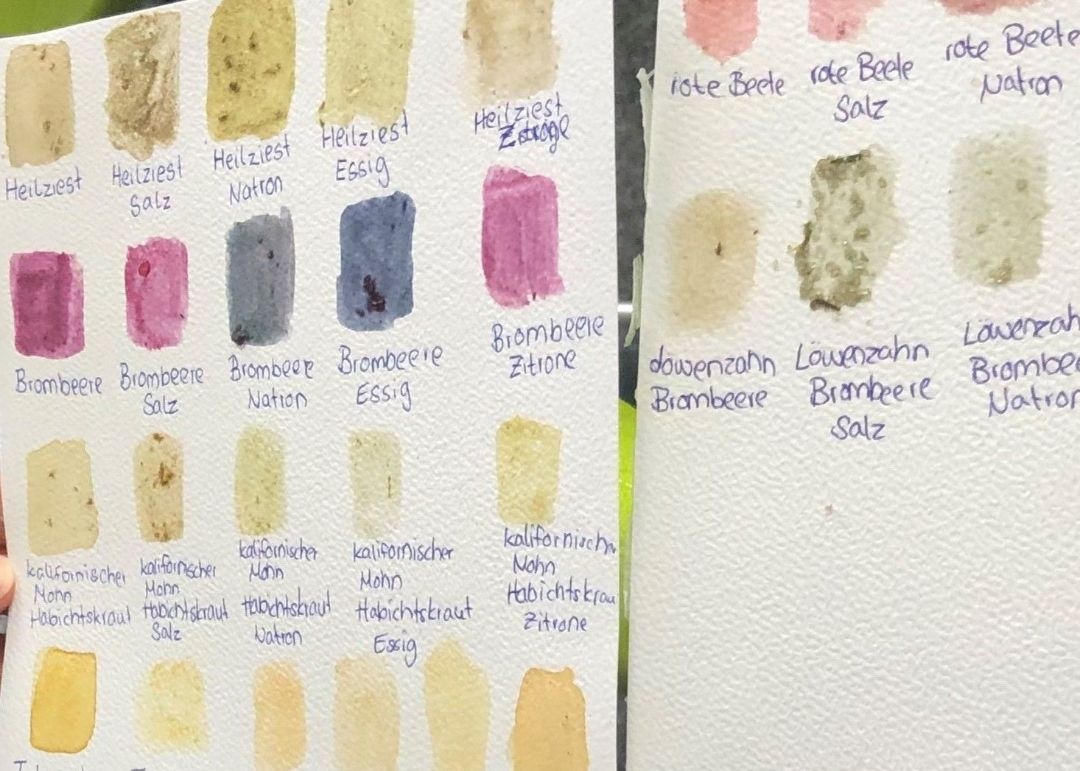 Heilziest
Heilziest
Salz
Heilziest
Natron
Heilziest
Essig
Heilziest
Brombeere
Brombeere
Salz
Brombeere
Natron
Brombeere
Essig
Brombeere
Zitrone
kalifornischer
Mohn
Habichtskraut
kalifornischer
Mohn
Habichtskraut
Salz
kalifornischer
Mohn
Habichtskraut
Natron
kalifornischer
Mohn
Habichtskraut
Essig
kalifornisch
Mohn
Habichtskrau
Zitrone
rote Beete
rote Beete
Salz
rote Beete
Natron
Löwenzahn
Brombeere
Löwenzahn
Brombeere
Salz
Löwenzah
Brombee
Natron